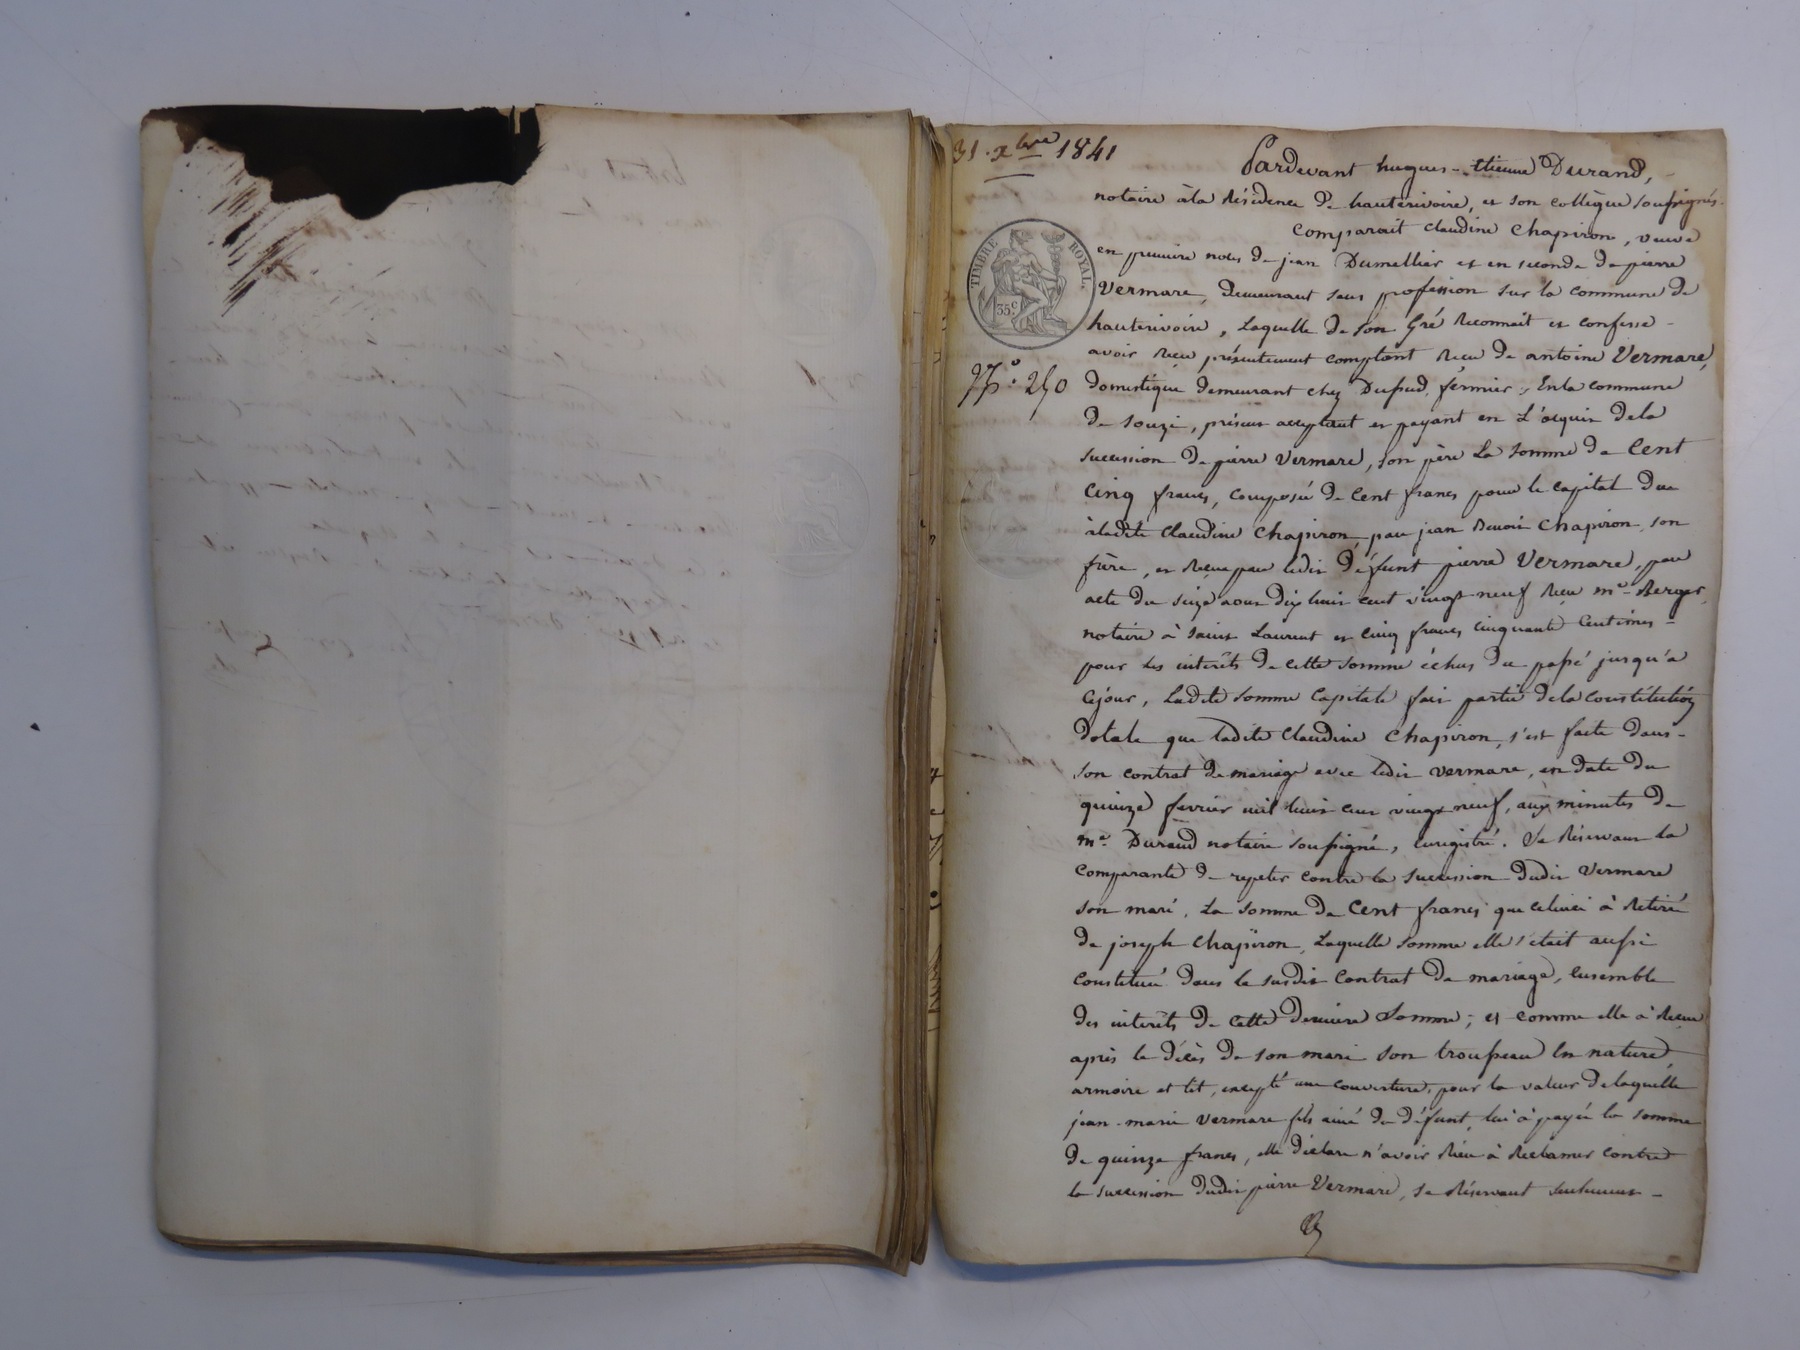 31. xbre 1841
Pardevant hugues-etienne Durand,
notaire à la Résidence De hauterivoire, et son collègue soussignés.
Comparait Claudine Chapiron, veuve
en premiere noces De jean Dumellier et en seconde De pierre
Vermare, Demeurant sans profession sur la commune De
hauterivoire, Laquelle De son Gré Reconnait et confesse -
avoir Recu présentement comptant Reçu De antoine Vermare,
TIMBRE ROYAL.
35 c
No. 250
Domestique Demeurant chez Dupud, fermier, En la commune
De Souzi, présent acceptant et payant en L'acquit De la
succession De pierre Vermare, son père La somme De Cent
Cinq francs, composée De Cent francs pour le capital Due
à ladite Claudine Chapiron, par jean Benoit Chapiron, son
frère, et Reçue par ledit Défunt pierre Vermare, par
acte Du seize aout Dix huit cent vingt neuf Reçu me Berger,
notaire à Saint Laurent et cinq francs cinquante Centimes -
pour les intérêts De cette somme échus Du passé jusqu'à
Cejour, Ladite somme Capitale fait partie De la constitution
Dotale que Ladite Claudine Chapiron, s'est faite Dans -
son contrat De mariage avec ledit Vermare, en Date Du
quinze fevrier mil huit cent vingt neuf, aux minutes De
me. Durand notaire soussigné, Enregistré. Se Réservant La
Comparante De repeter contre la succession Dudit Vermare
son mari, La somme De Cent francs que celuici à Retiré
De joseph Chapiron, Laquelle somme elle s'etait aussi
Constituée Dans le susdit Contrat De mariage, Ensemble
Des intérêts De Cette Derniere Somme; et comme elle à Reçue
après le Décès De son mari son troupeau En nature,
armoire et lit, excepté une couverture, pour la valeur De laquelle
jean-marie Vermare fils ainé Du Défunt, lui à payée la somme
De quinze francs, elle Déclare n'avoir Rien à Réclamer Contre
la succession Dudit pierre Vermare, se Réservant seulement -